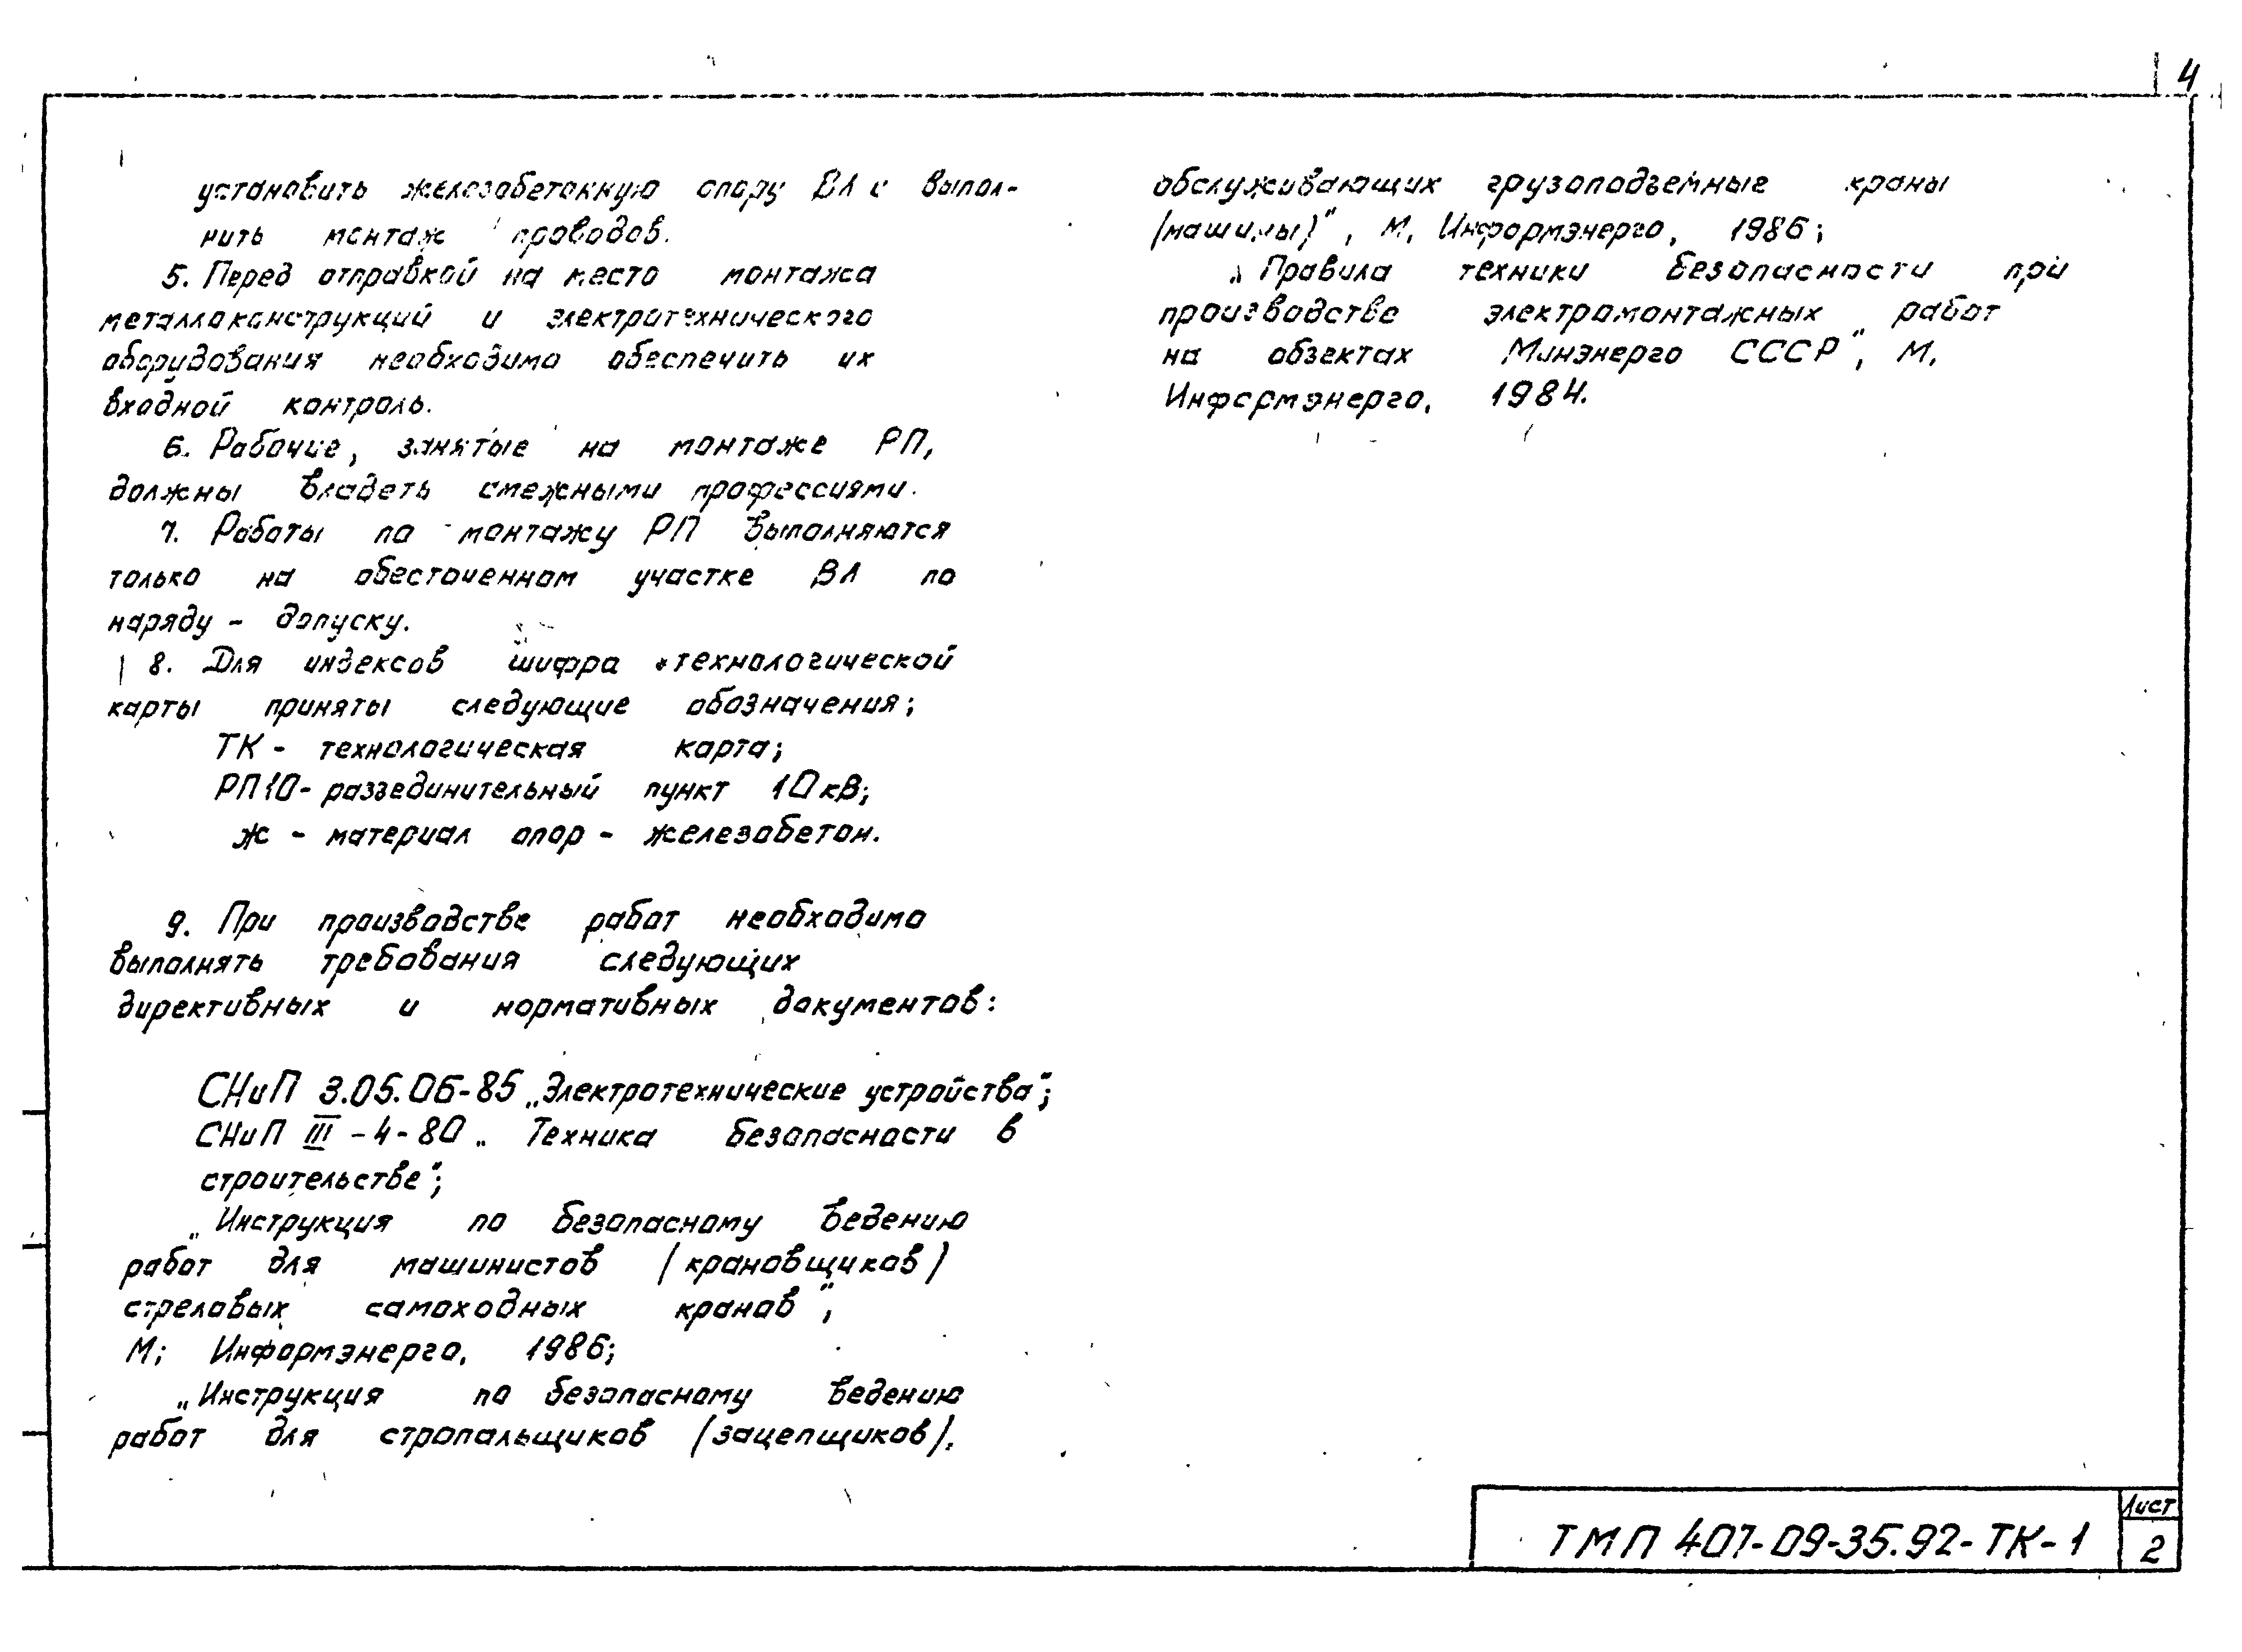 4
установить железобетонную опору ВЛ и выпол-
нить монтаж проводов.
5. Перед отправкой на место монтажа
металлоконструкций и электротехнического
оборудования необходимо обеспечить их
входной контроль.
6. Рабочие, занятые на монтаже РП,
должны владеть смежными профессиями.
7. Работы по монтажу РП выполняются
только на обесточенном участке ВЛ по
наряду - допуску.
8. Для индексов шифра технологической
карты приняты следующие обозначения;
ТК - технологическая карта;
РП10- разъединительный пункт 10кВ;
Ж - материал опор - железобетон.
9. При производстве работ необходимо
выполнять требования следующих
директивных и нормативных документов:
СНиП 3.05.06-85 „Электротехнические устройства";
СНиП III -4-80 „ Техника безопасности в
строительстве";
„Инструкция по безопасному ведению
работ для машинистов (крановщиков)
стреловых самоходных кранов",
М; Информэнерго, 1986;
„Инструкция по безопасному ведению
работ для стропальщиков (зацепщиков),
обслуживающих грузоподъемные краны
(машины)", М, Информэнерго, 1986;
„Правила техники безопасности при
производстве электромонтажных работ
на объектах Минэнерго СССР", М,
Информэнерго, 1984.
ТМП 407-09-35.92-ТК-1
Лист
2